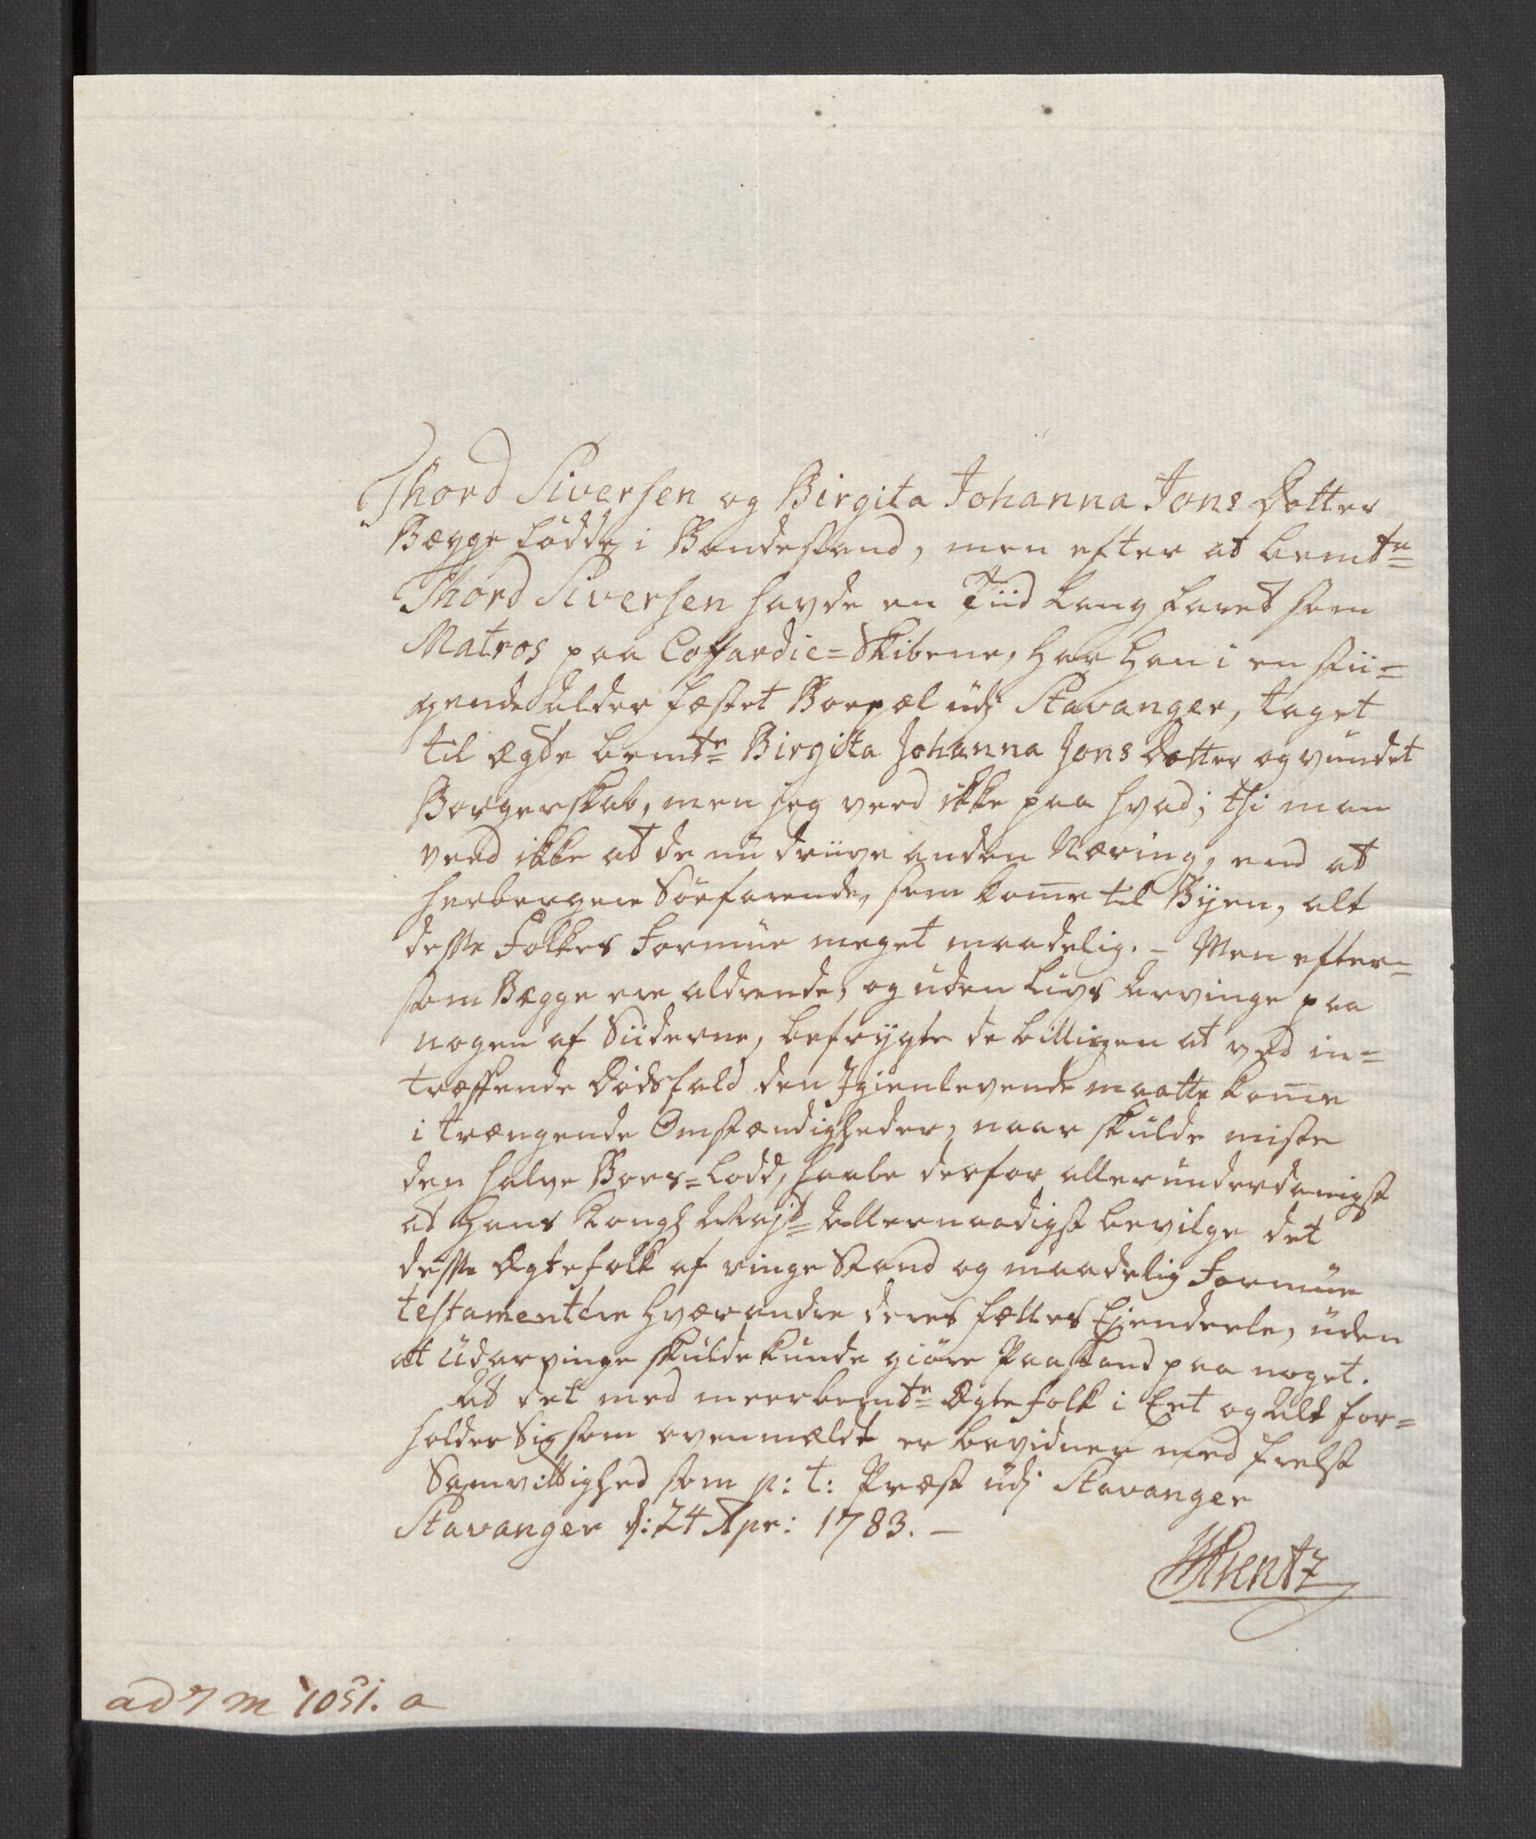 Thord Siversen og Birgita Johanna Jons Dotter
Bægge födde i Bondestand, men efter at bemte
Thord Siversen havde en Tiid lang faret som
Matros paa Coffardie=Skibene, har han i en stii=
gende Alder fæstet Boepæl udj Stavanger, taget
til Ægte bemte Birgita Johanna Jons Dotter og vundet
Borgerskab, men jeg veed ikke paa hvad; thi man
veed ikke at de nu driive anden Næring, end at
herbergere Söefarende, som kome til Byen, alt
desse Folkes Formue meget maadelig. – Men efter=
som Bægge ere aldrende, og uden Livs Arvinge paa
nogen af Siiderne, befrygte de billigen at ved in=
træffende Dödsfald den Igienlevende maatte kome
i trængende Omstændigheder, naar skulde miste
den halve Boes=Lodd, haabe derfor allerunderdanigst
at Hans Kongl Majt Allernaadigst bevilge det
desse Ægtefolk af ringe Stand og maadelig Formue
testamentere hverandre deres fælles Ejendeele, uden
at Udarvinge skulde kunde giöre Paastand paa noget.
At det med meerbemte Ægtefolk i Eet og Alt for=
holder Sig som ovenmældt er bevidner med frelst
Samvittighed som p: t: Præst udj Stavanger
Stavanger d: 24 Apr: 1783. –
ad 7 m 1051. a